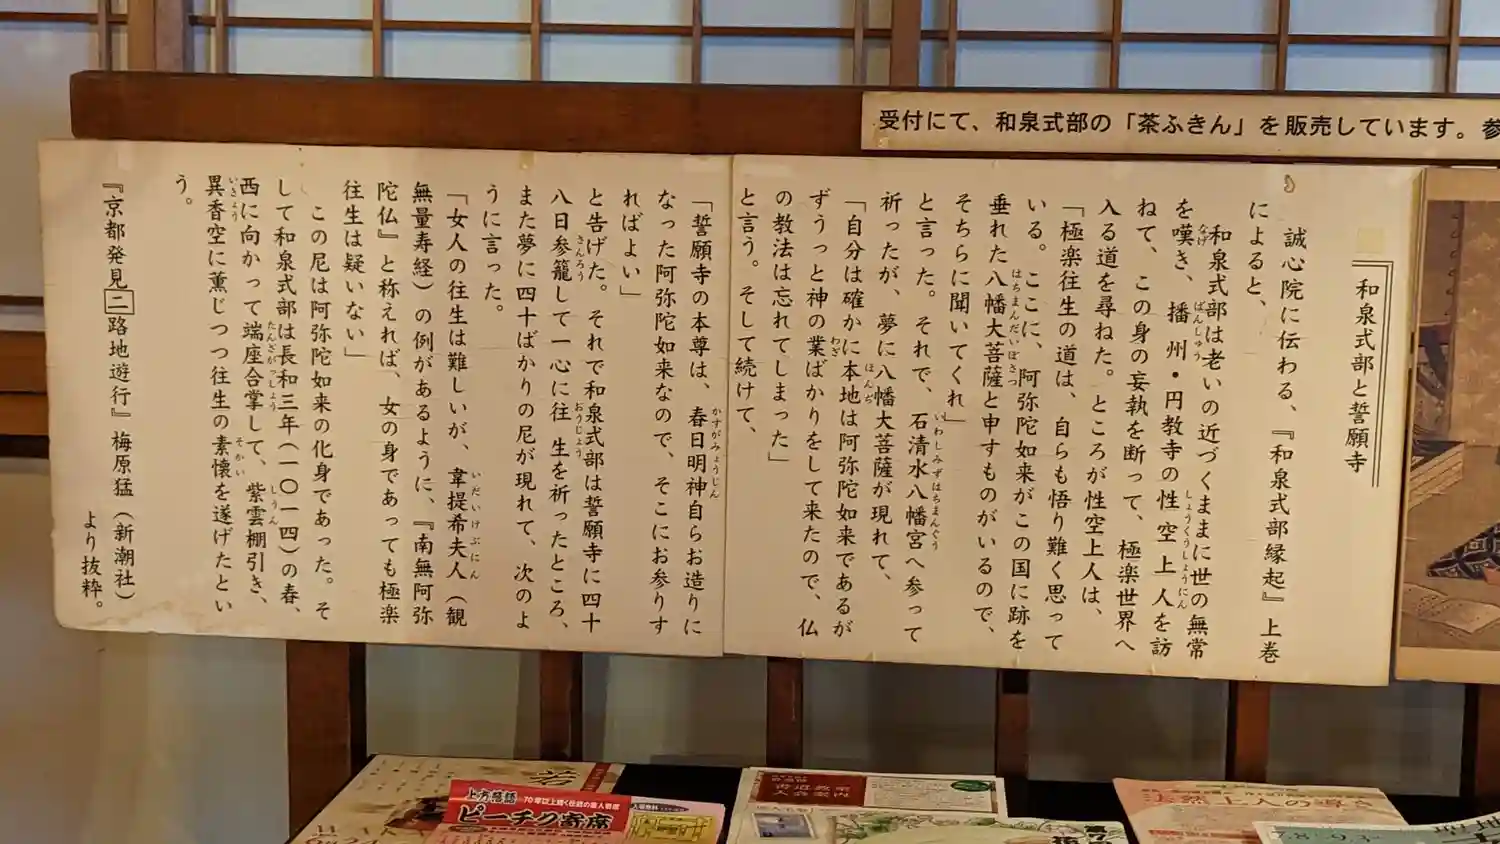 受付にて、和泉式部の「茶ふきん」を販売しています。参
和泉式部と誓願寺
誠心院に伝わる、『和泉式部縁起』上巻
によると、
和泉式部は老いの近づくままに世の無常
を嘆き、播州・円教寺の性空上人を訪
ねて、この身の妄執を断って、極楽世界へ
入る道を尋ねた。ところが性空上人は、
「極楽往生の道は、自らも悟り難く思って
いる。ここに、阿弥陀如来がこの国に跡を
垂れた八幡大菩薩と申すものがいるので、
そちらに聞いてくれ」
と言った。それで、石清水八幡宮へ参って
祈ったが、夢に八幡大菩薩が現れて、
「自分は確かに本地は阿弥陀如来であるが
ずうっと神の業ばかりをして来たので、仏
の教法は忘れてしまった」
と言う。そして続けて、
「誓願寺の本尊は、春日明神自らお造りに
なった阿弥陀如来なので、そこにお参りす
ればよい」
と告げた。それで和泉式部は誓願寺に四十
八日参籠して一心に往生を祈ったところ、
また夢に四十ばかりの尼が現れて、次のよ
うに言った。
「女人の往生は難しいが、韋提希夫人（観
無量寿経）の例があるように、『南無阿弥
陀仏』と称えれば、女の身であっても極楽
往生は疑いない」
この尼は阿弥陀如来の化身であった。そ
して和泉式部は長和三年（一〇一四）の春、
西に向かって端座合掌して、紫雲棚引き、
異香空に薫じつつ往生の素懐を遂げたとい
う。
『京都発見 二 路地遊行』梅原猛（新潮社）
より抜粋。
上方落語
70年以上続く伝統の素人寄席
ピーチク寄席
入場無料
書道教室
入会案内
法然上人の導き
7.8
9.3